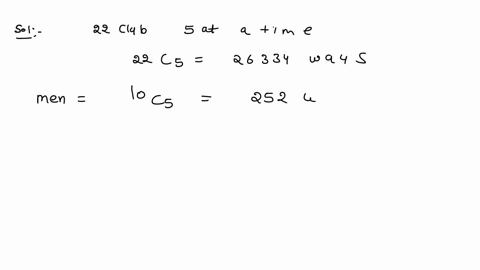 Sol:- 22 Club 5 at a time
22 C5 = 26334 ways
men = 10 C5 = 252 w